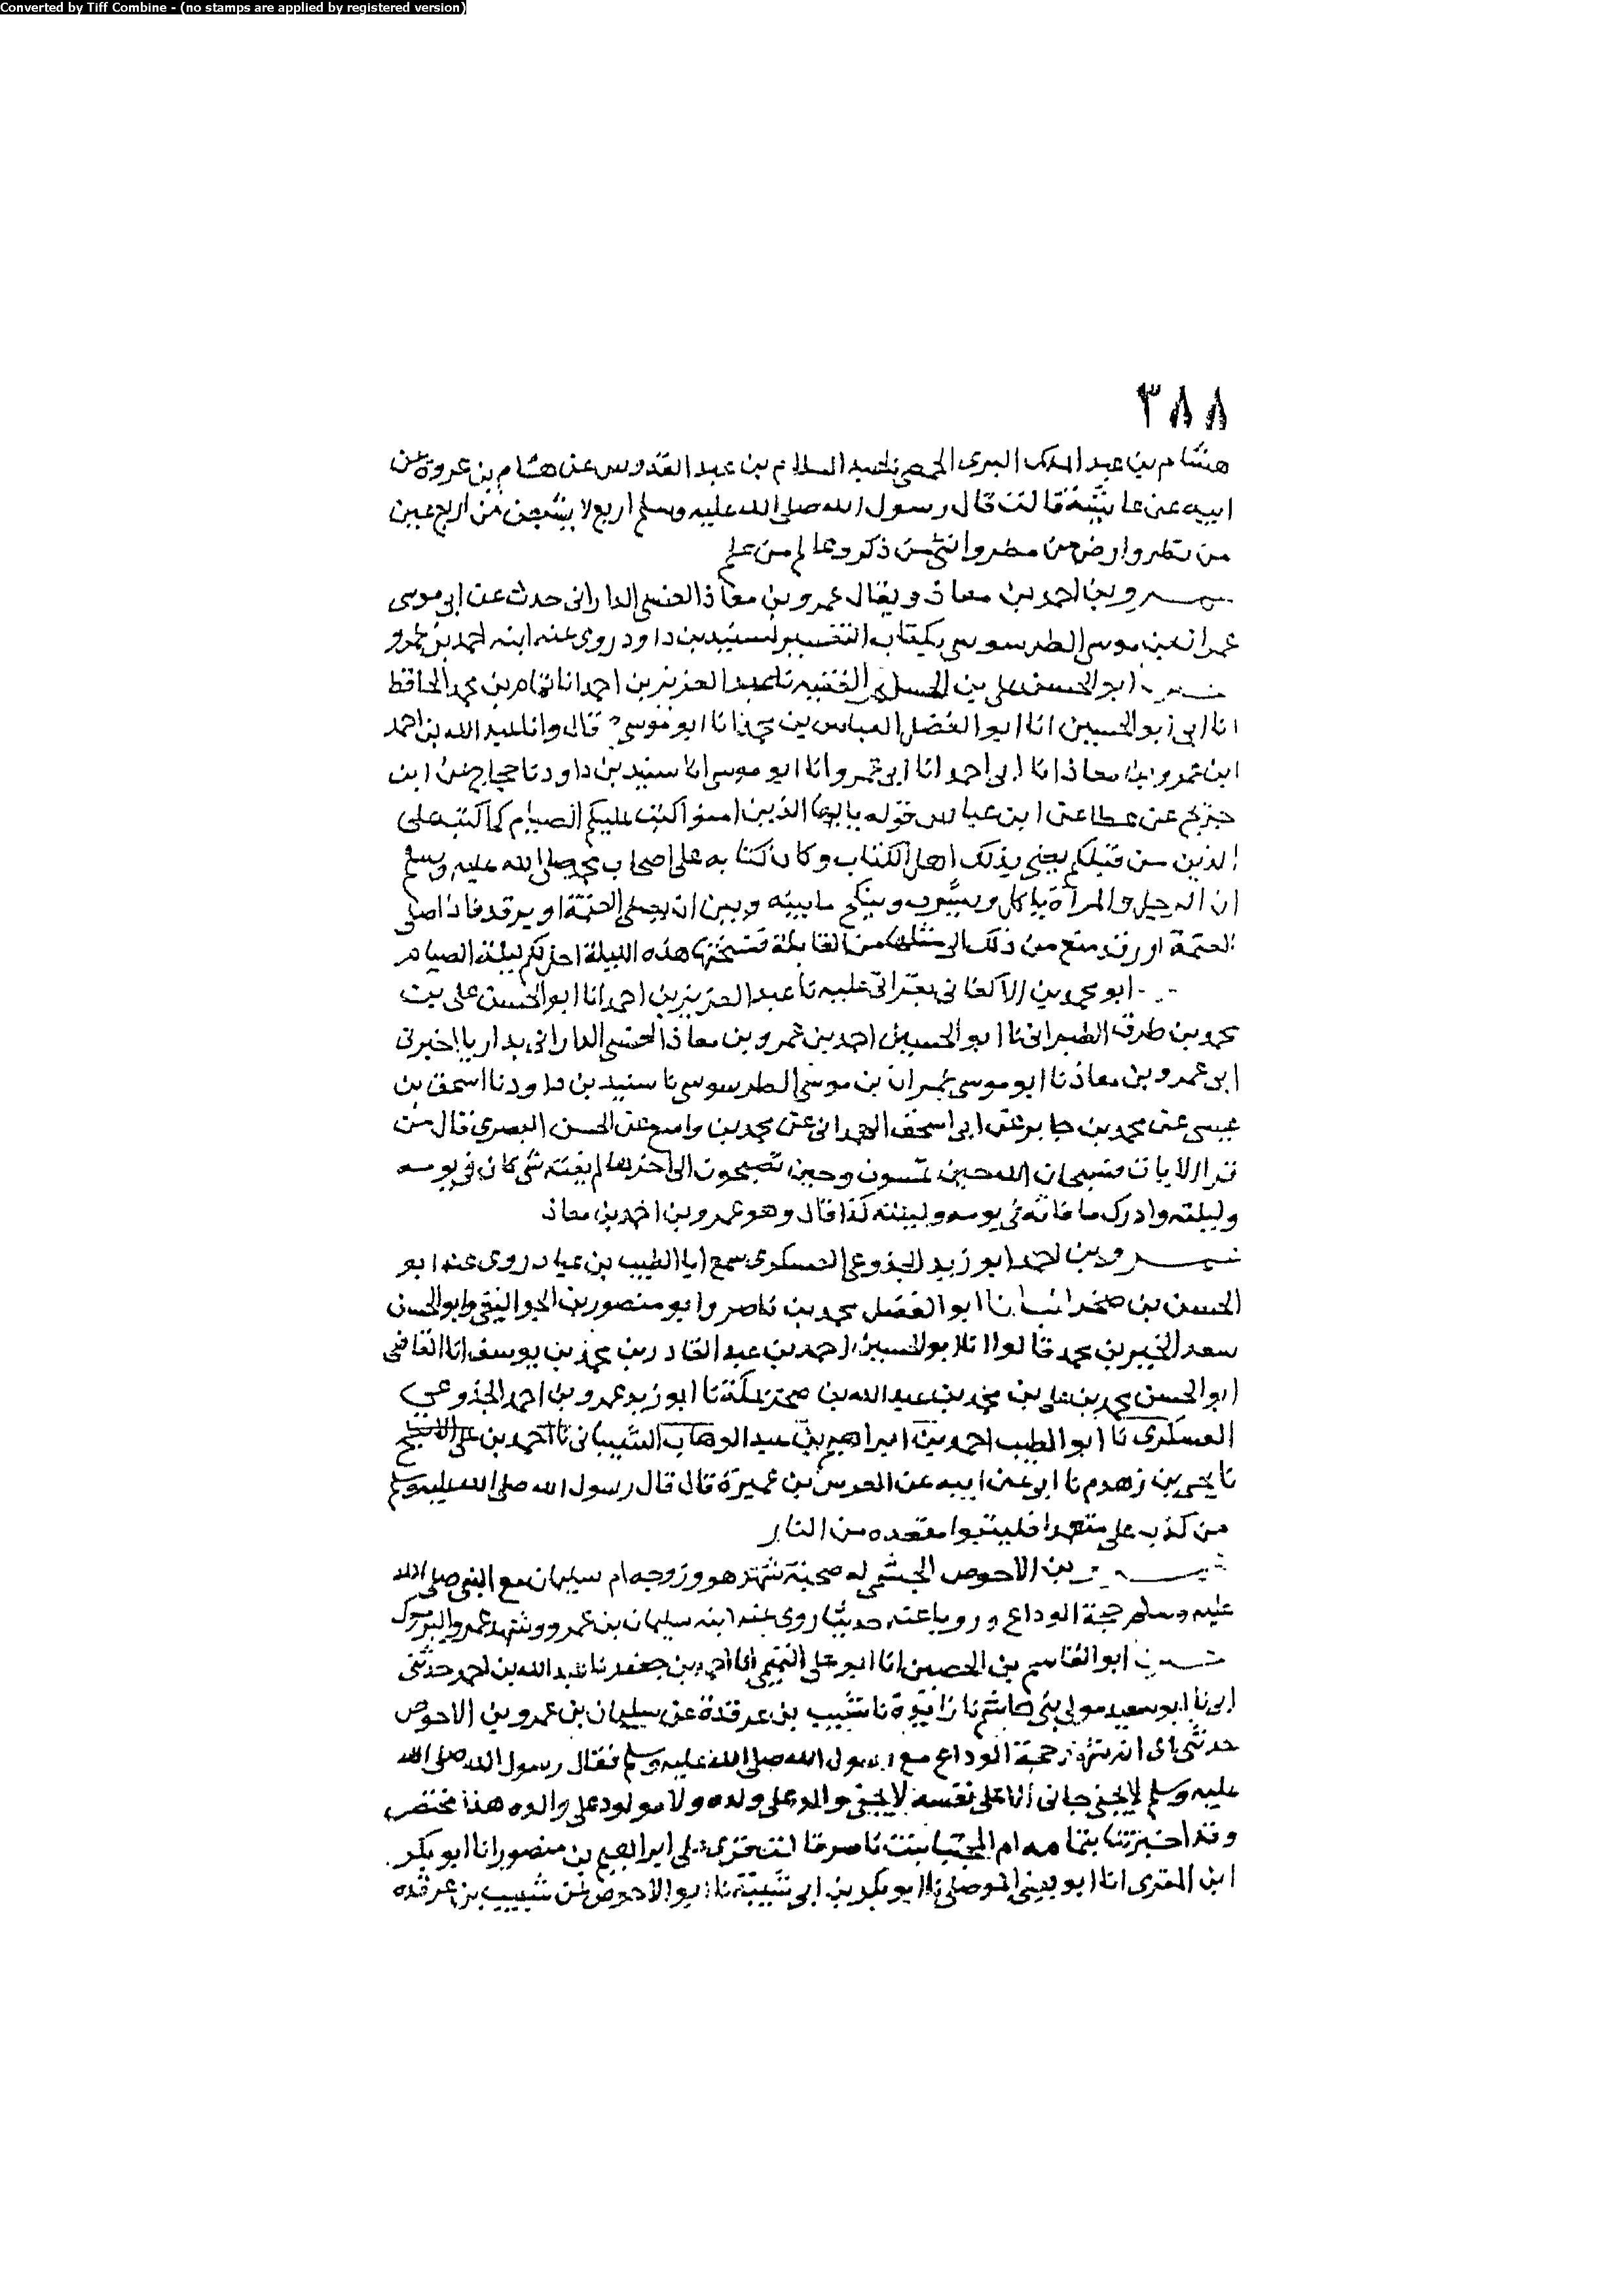 Converted by Tiff Combine - (no stamps are applied by registered version)
٣٨٨
هشام بن عبد الملك اليزني الحمصي نا عبد السلام بن عبد القدوس عن هشام بن عروة عن
ابيه عن عايشة قالت قال رسول الله صلى الله عليه وسلم اربع لا يشبعن من اربع عين
من نظر وارض من مطر وانثى من ذكر وعالم من علم
عمرو بن احمد بن معاذ ويقال عمرو بن معاذ العنسي الداراني حدث عن ابي موسى
عمران بن موسى الطرسوسي بكتاب التفسير لسنيد بن داود روى عنه ابنه احمد بن عمرو
ابو الحسن علي بن المسلم الفقيه نا عبد العزيز بن احمد انا تمام بن محمد الحافظ
انا ابي ابو الحسين انا ابو الفضل العباس بن محمد نا ابو موسى قال وانا عبد الله بن احمد
ابن عمرو بن معاذ انا ابي احمد انا ابي عمرو انا ابو موسى انا سنيد بن داود نا حجاج عن ابن
جريج عن عطا عن ابن عباس قوله يا ايها الذين امنوا كتب عليكم الصيام كما كتب على
الذين من قبلكم يعني بذلك اهل الكتاب وكان كتابه على اصحاب محمد صلى الله عليه وسلم
ان الرجل والمرأة ياكل ويشرب وينكح ما بينه وبين ان يصلي العتمة او يرقد فاذا صلى
العتمة او رقد منع من ذلك الى مثلها من القابلة فنسختها هذه الليلة احل لكم ليلة الصيام
ابو محمد بن الاكفاني بقراتي عليه نا عبد العزيز بن احمد انا ابو الحسن علي بن
محمد بن طوق الطبراني نا ابو الحسين احمد بن عمرو بن معاذ العنسي الداراني بداريا اخبرني
ابي عمرو بن معاذ نا ابو موسى عمران بن موسى الطرسوسي نا سنيد بن داود نا اسحق بن
عيسى عن محمد بن جابر عن ابي اسحق الهمداني عن محمد بن واسع عن الحسن البصري قال من
قرا الايات فسبحان الله حين تمسون وحين تصبحون الى اخرها لم يفته شي كان في يومه
وليلته وادرك ما فاته في يومه وليلته كذا قال وهو عمرو بن احمد بن معاذ
عمرو بن احمد ابو زيد الجذوعي العسكري سمع ابا الطيب بن عباد روى عنه ابو
الحسن بن صخر انبانا ابو الفضل محمد بن ناصر وابو منصور بن الجواليقي وابو الحسن
سعد الخير بن محمد قالوا انا ابو الحسين احمد بن عبد القادر بن محمد بن يوسف انا القاضي
ابو الحسن محمد بن علي بن محمد بن عبيد الله بن صخر بمكة نا ابو زيد عمرو بن احمد الجذوعي
العسكري نا ابو الطيب احمد بن ابراهيم بن عبد الوهاب الشيباني نا احمد بن علي الافطح
نا يحيى بن زهدم نا ابي عن ابيه عن العرس بن عميرة قال قال رسول الله صلى الله عليه وسلم
من كذب علي متعمدا فليتبوا مقعده من النار
عمرو بن الاحوص الجشمي له صحبة شهد هو وزوجه ام سليمان مع النبي صلى الله
عليه وسلم حجة الوداع ورويا عنه حديثا روى عنه ابنه سليمان بن عمرو وشهد عمرو اليرموك
ابو القاسم بن الحصين انا ابو علي التميمي انا احمد بن جعفر نا عبد الله بن احمد حدثني
ابي نا ابو سعيد مولى بني هاشم نا زايدة نا شبيب بن غرقدة عن سليمان بن عمرو بن الاحوص
حدثني ابي انه شهد حجة الوداع مع رسول الله صلى الله عليه وسلم فقال رسول الله صلى الله
عليه وسلم لا يجني جاني الا على نفسه لا يجني والد على ولده ولا مولود على والده هذا مختصر
وقد اخبرتنا بتمامه ام المجتبا بنت ناصر قالت قرى على ابراهيم بن منصور انا ابو بكر
ابن المقرى انا ابو يعلى الموصلي نا ابو بكر بن ابي شيبة نا ابو الاحوص عن شبيب بن غرقدة